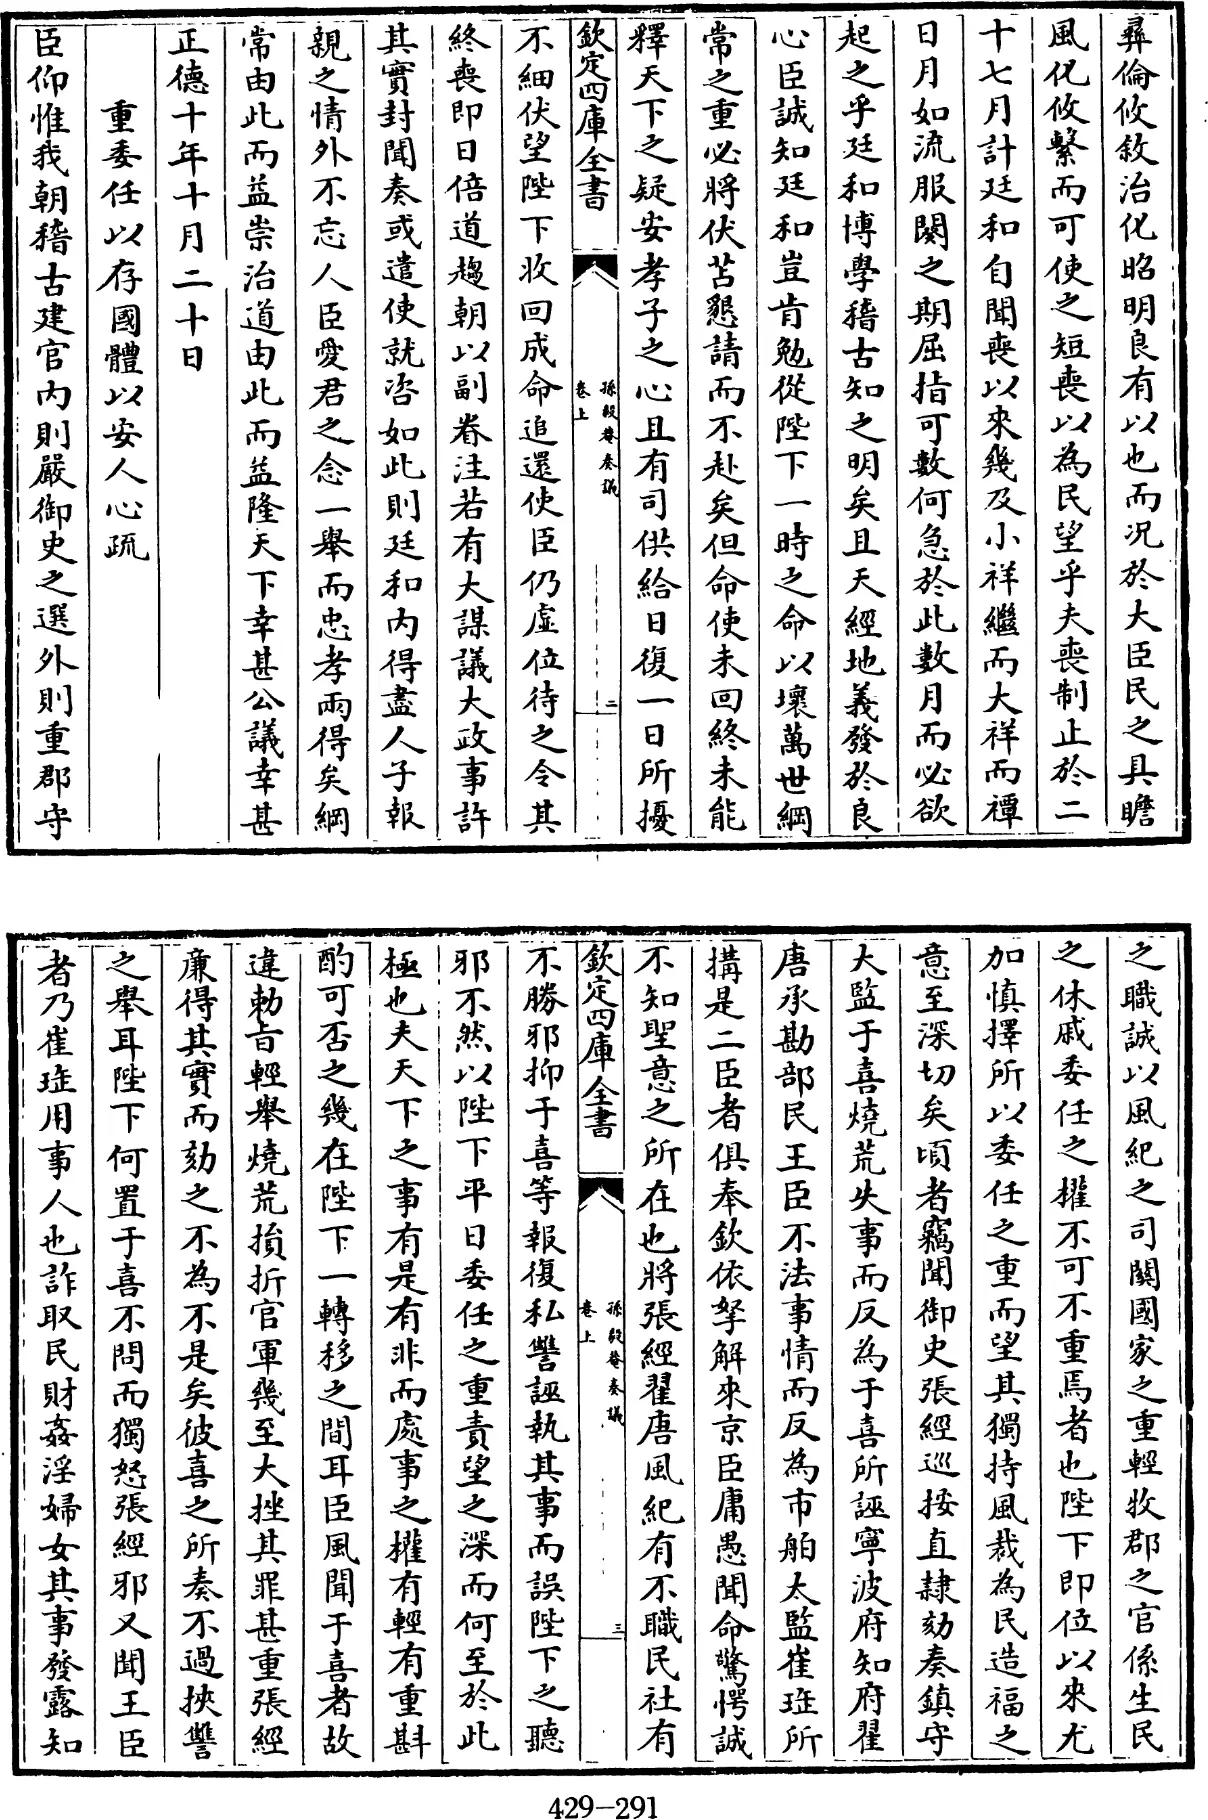 彞倫攸敘治化昭明良有以也而况於大臣民之具瞻
風化攸繫而可使之短喪以為民望乎夫喪制止於二
十七月計廷和自聞喪以來幾及小祥繼而大祥而禫
日月如流服闋之期屈指可數何急於此數月而必欲
起之乎廷和博學稽古知之明矣且天經地義發於良
心臣誠知廷和豈肯勉從陛下一時之命以壞萬世綱
常之重必將伏苫懇請而不赴矣但命使未回終未能
釋天下之疑安孝子之心且有司供給日復一日所擾
欽定四庫全書
孫毅菴奏議
卷上
二
不細伏望陛下收回成命追還使臣仍虛位待之令其
終喪即日倍道趨朝以副眷注若有大謀議大政事許
其實封聞奏或遣使就咨如此則廷和内得盡人子報
親之情外不忘人臣愛君之念一舉而忠孝兩得矣綱
常由此而益崇治道由此而益隆天下幸甚公議幸甚
正德十年十月二十日
重委任以存國體以安人心疏
臣仰惟我朝稽古建官内則嚴御史之選外則重郡守
之職誠以風紀之司關國家之重輕牧郡之官係生民
之休戚委任之權不可不重焉者也陛下即位以來尤
加慎擇所以委任之重而望其獨持風裁為民造福之
意至深切矣頃者竊聞御史張經巡按直隸劾奏鎮守
大監于喜燒荒失事而反為于喜所誣寧波府知府翟
唐承勘部民王臣不法事情而反為市舶太監崔珪所
搆是二臣者俱奉欽依拏解來京臣庸愚聞命驚愕誠
不知聖意之所在也將張經翟唐風紀有不職民社有
欽定四庫全書
孫毅菴奏議
卷上
三
不勝邪抑于喜等報復私讐誣執其事而誤陛下之聽
邪不然以陛下平日委任之重責望之深而何至於此
極也夫天下之事有是有非而處事之權有輕有重斟
酌可否之幾在陛下一轉移之間耳臣風聞于喜者故
違勅旨輕舉燒荒損折官軍幾至大挫其罪甚重張經
廉得其實而劾之不為不是矣彼喜之所奏不過挾讐
之舉耳陛下何置于喜不問而獨怒張經邪又聞王臣
者乃崔珪用事人也詐取民財姦淫婦女其事發露知
429-291